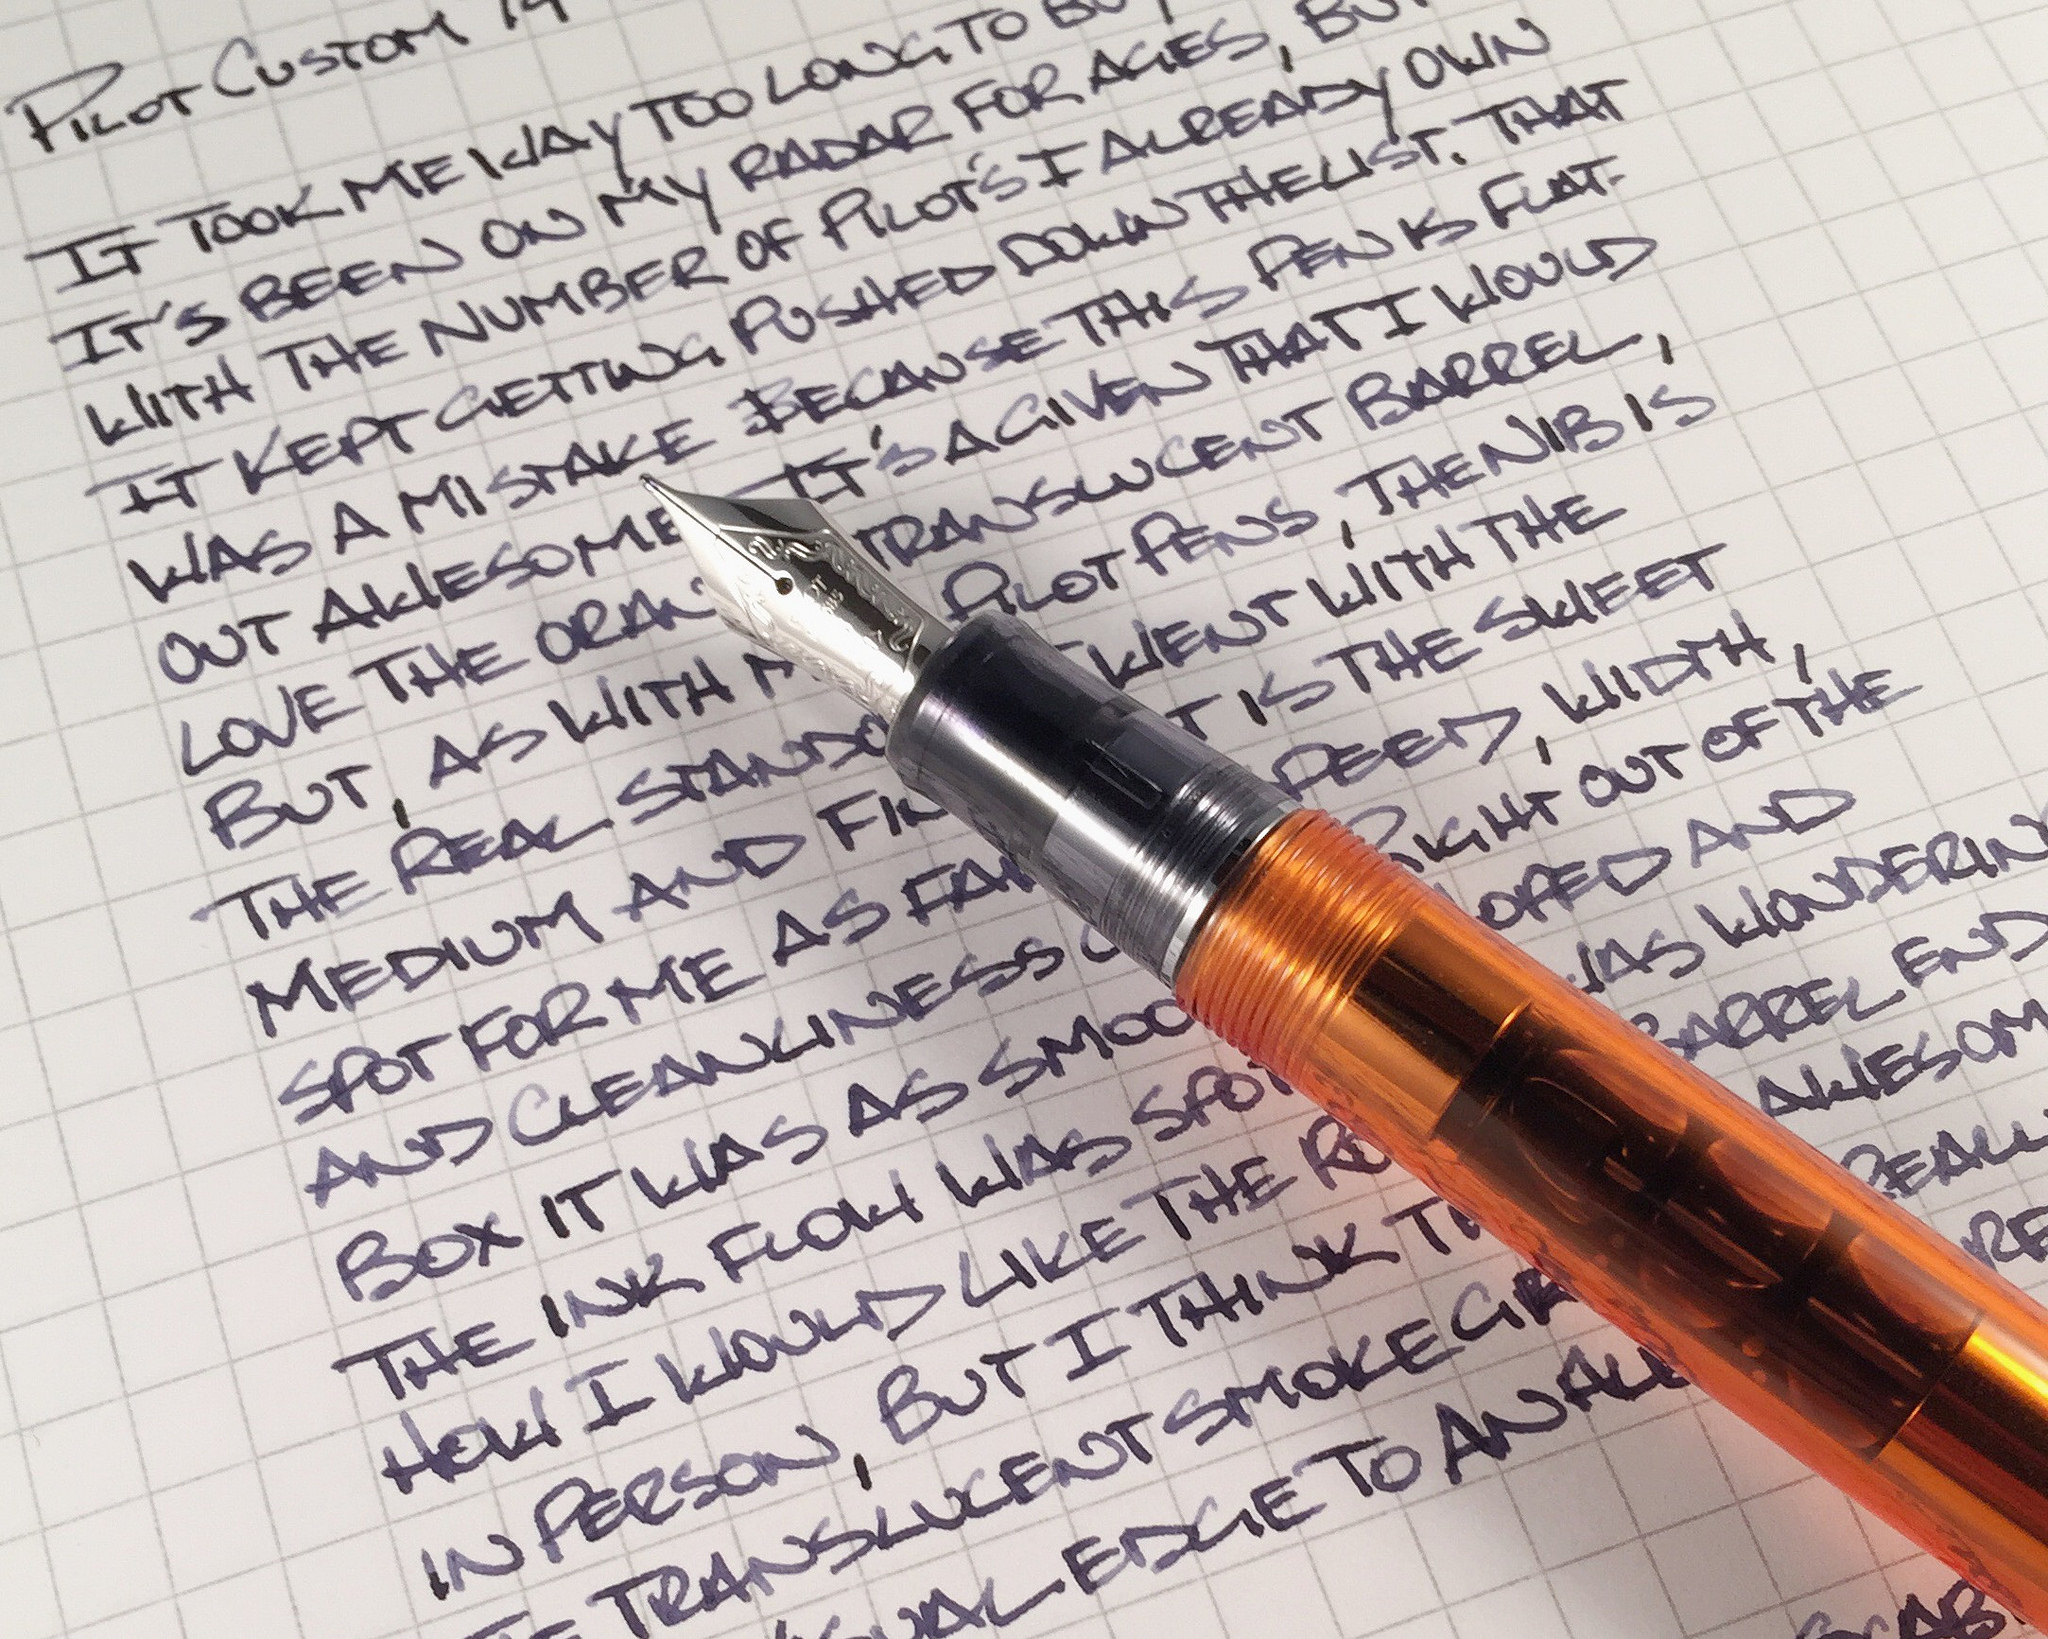 PILOT CUSTOM 74
IT TOOK ME WAY TOO LONG TO BUY
IT'S BEEN ON MY RADAR FOR AGES, BUT
WITH THE NUMBER OF PILOT'S I ALREADY OWN
IT KEPT GETTING PUSHED DOWN THE LIST. THAT
WAS A MISTAKE BECAUSE THIS PEN IS FLAT-
OUT AWESOME. IT'S A GIVEN THAT I WOULD
LOVE THE ORAN TRANSLUCENT BARREL,
BUT, AS WITH PILOT PENS, THE NIB IS
THE REAL STANDO WENT WITH THE
MEDIUM AND FIN T IS THE SWEET
SPOT FOR ME AS FAR PEED, WIDTH,
AND CLEANLINESS RIGHT OUT OF THE
BOX IT WAS AS SMOO OPED AND
THE INK FLOW WAS SPOT WAS WONDERING
HOW I WOULD LIKE THE RO BARREL END
IN PERSON, BUT I THINK T AWESOM
TRANSLUCENT SMOKE GR REALLY
EDGE TO AN ALR RE